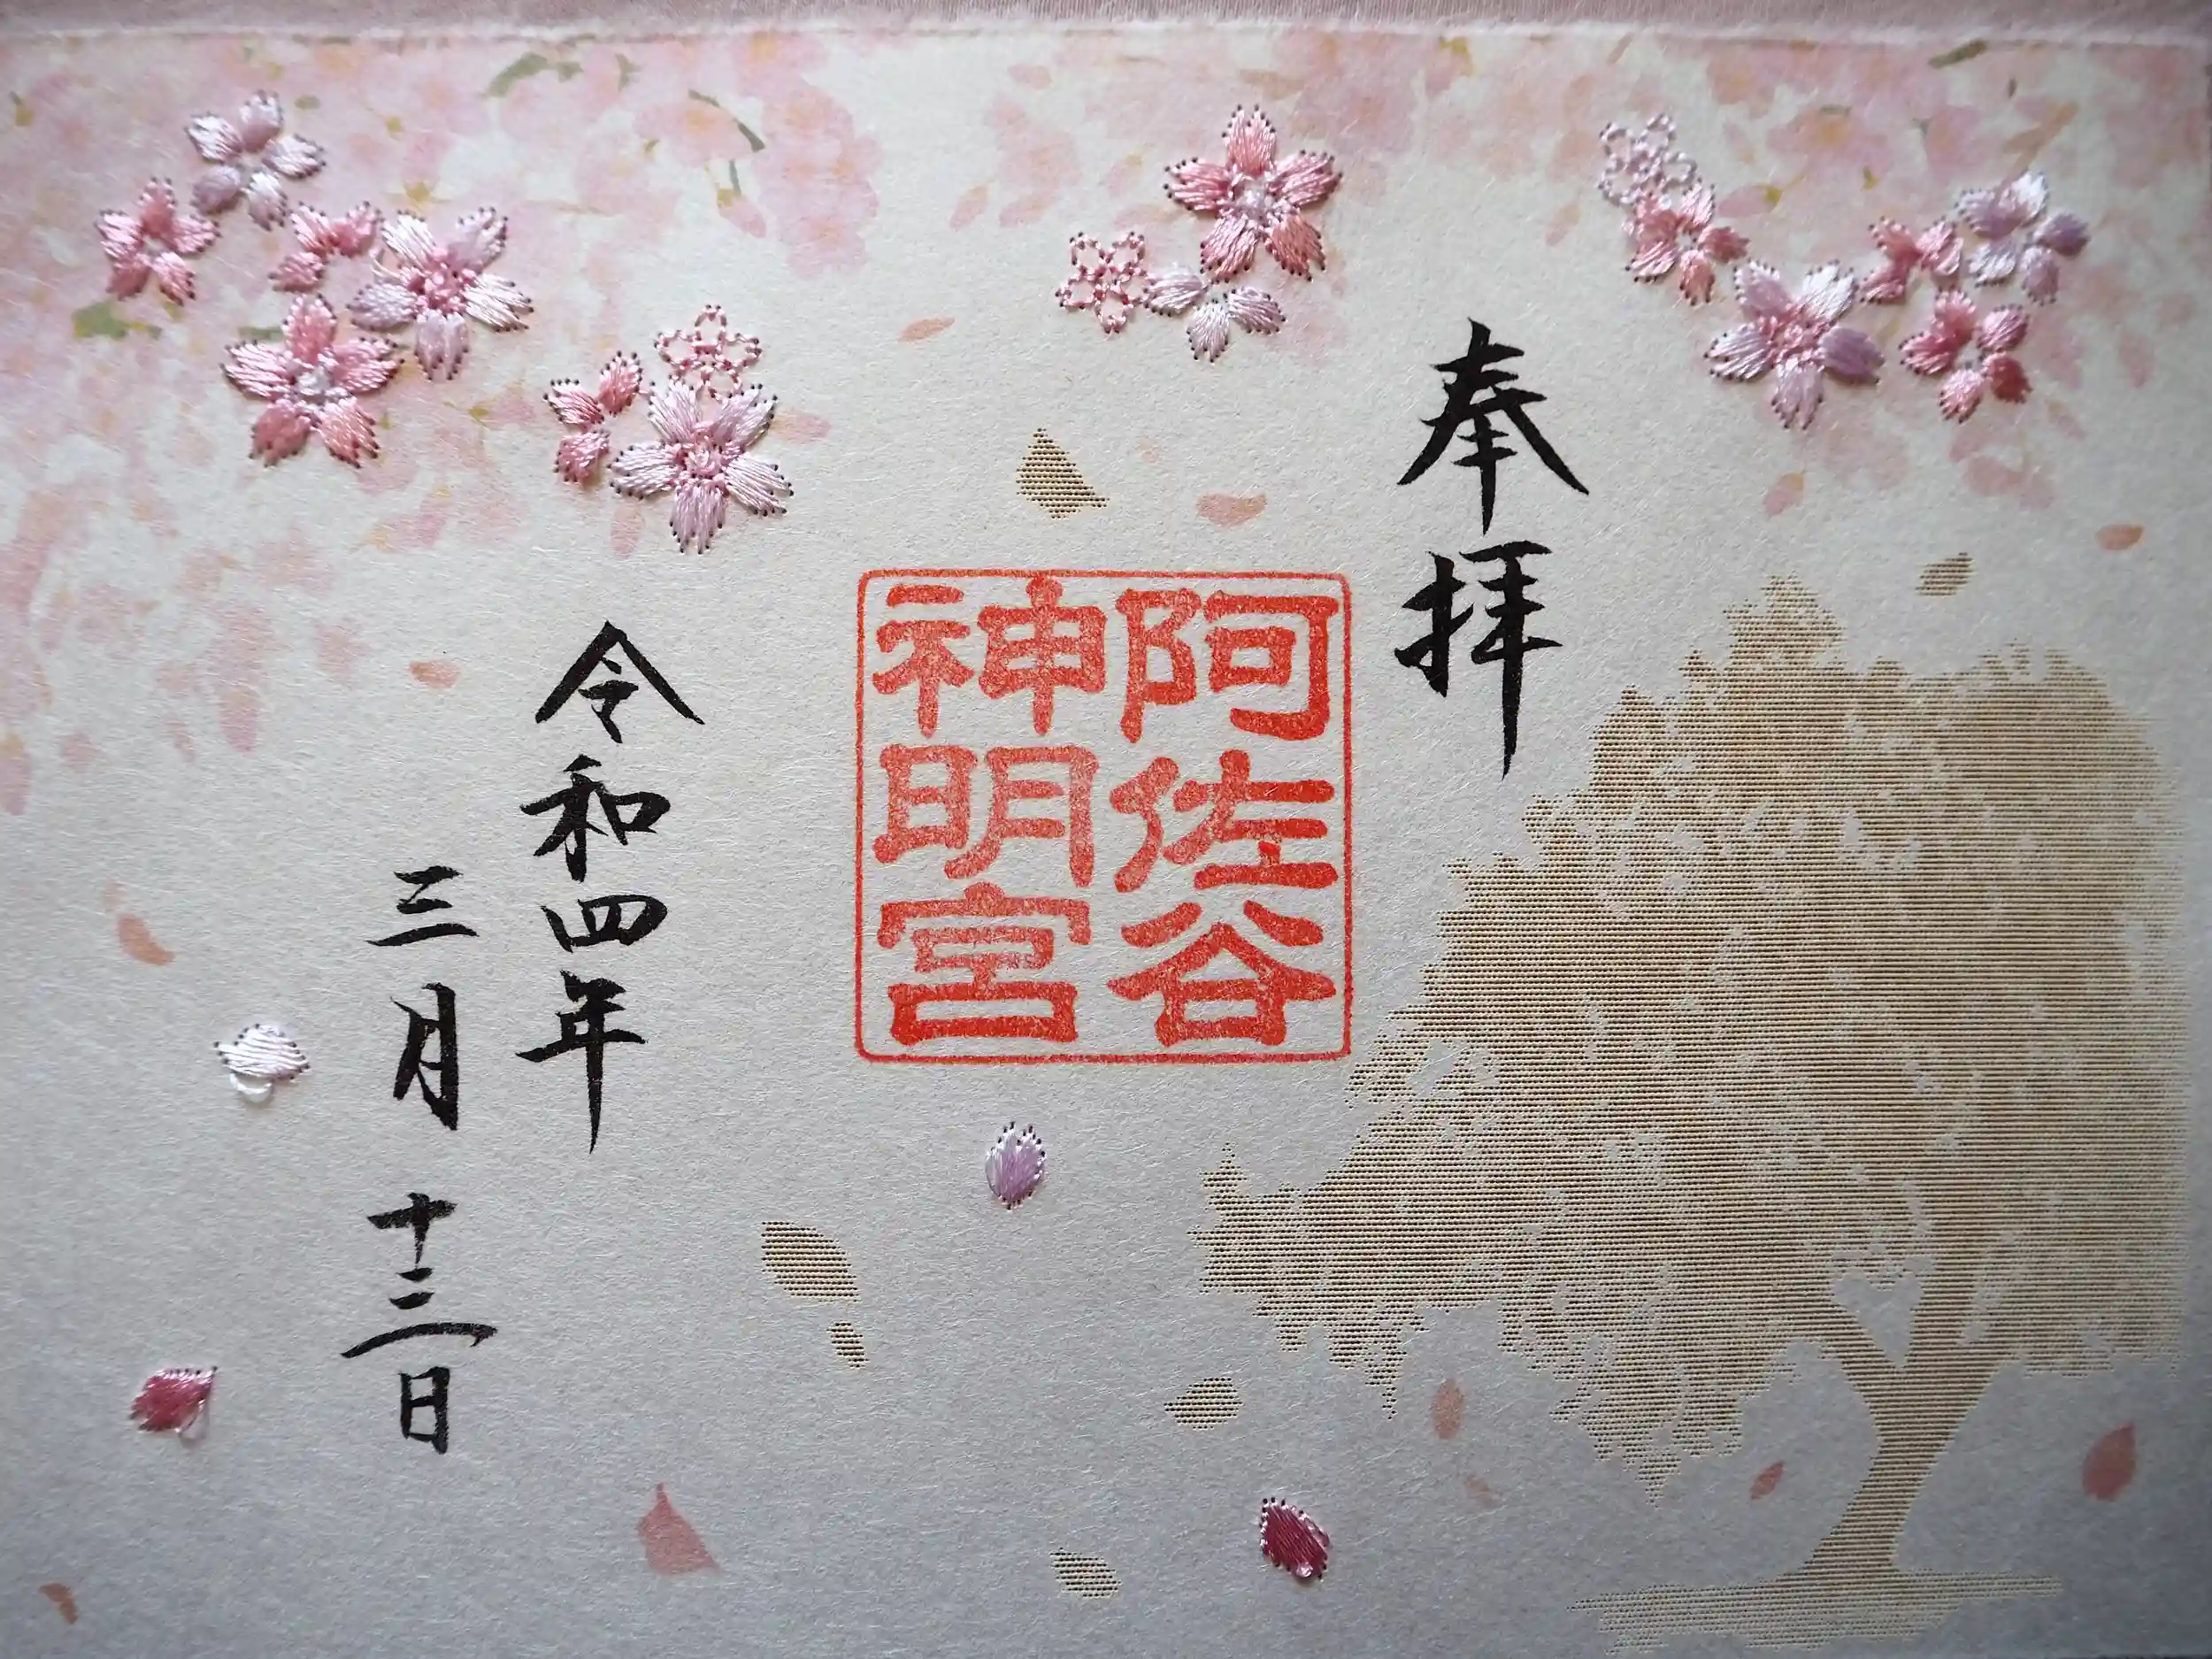 奉拝
阿佐谷
神明宮
令和四年
三月十三日